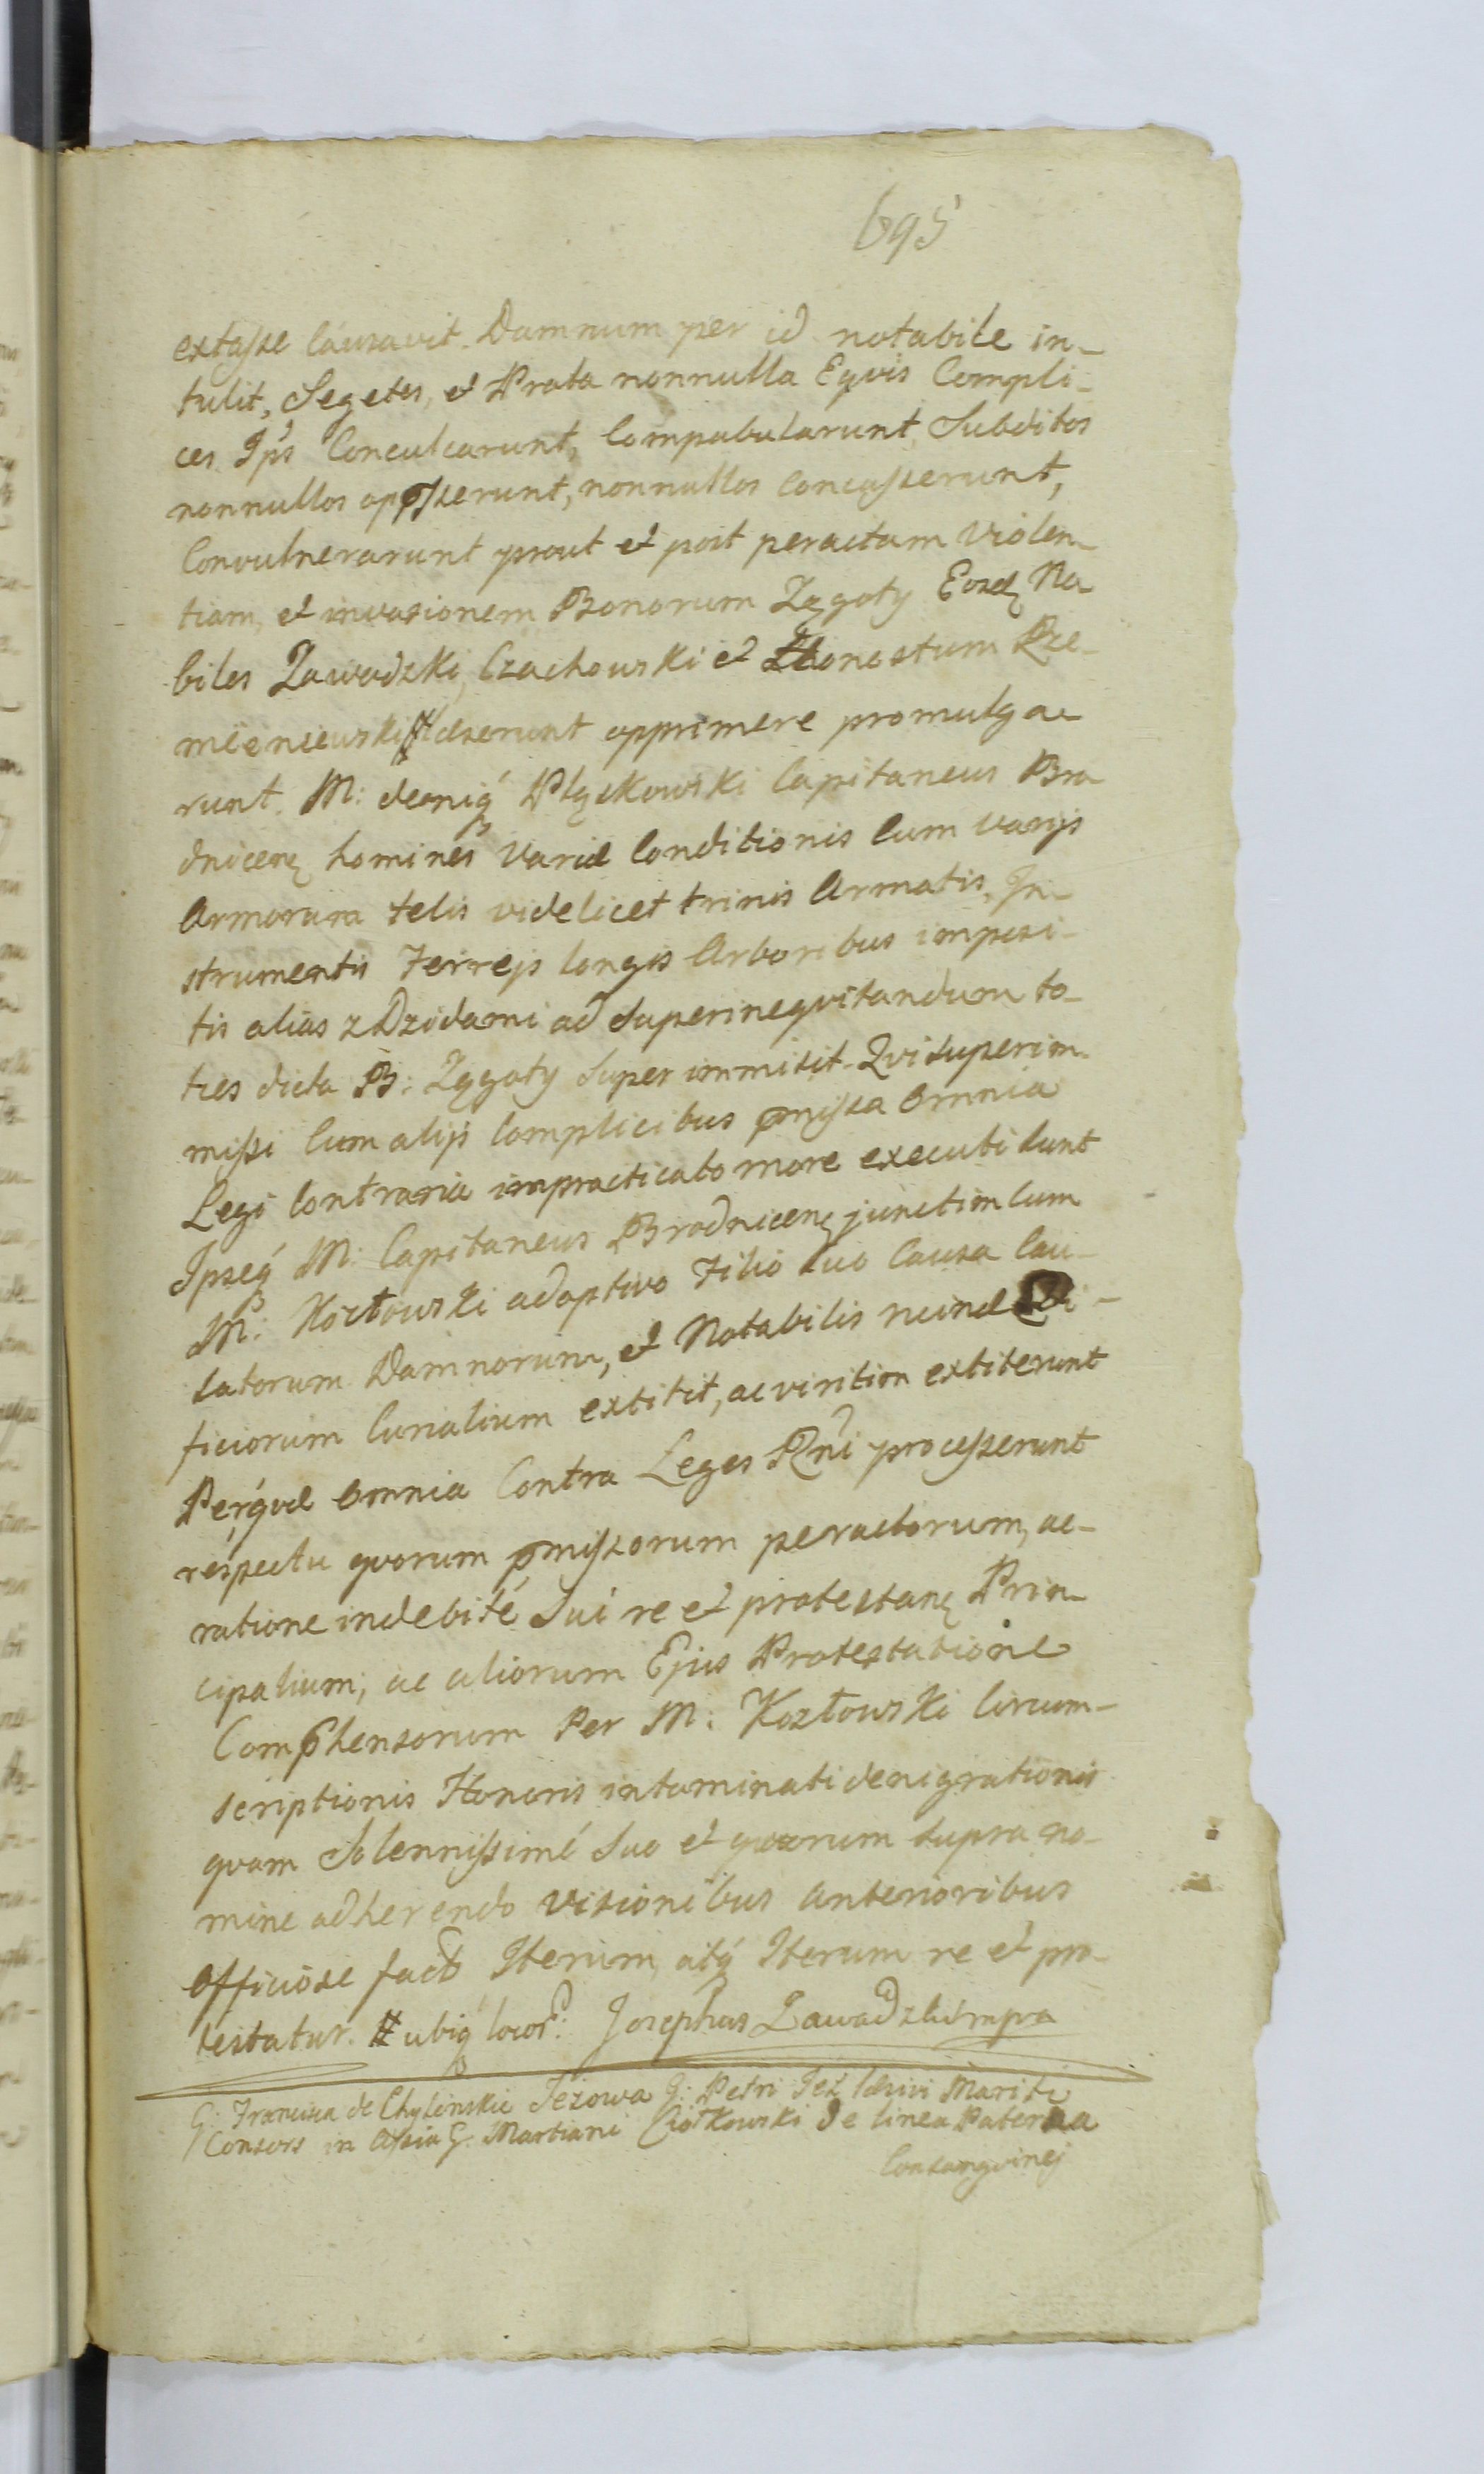 695
extasse Causavit. Damnum per id notabile in-
tulit, Segetes, et Prata nonnulla Eqvis Compli-
ces Ips Conculcarunt, Compabularunt, Subditos
nonnullos opꝓsserunt, nonnullos Concusserunt,
Convulnerarunt prout et post peractam Violen-
tiam, et invasionem Bonorum Zęgoty Eosdȩ No-
biles Zawadzki, Czachowski et Honestum Rze-
opprimere promulga-
runt. M: Płąskowski Capitaneus Bro-
dnicenȩ homines Variæ Conditionis Cum varijs
Armorum telis videlicet trinis Armatis, In-
strumentis Ferrejs longis Arboribus imposi-
tis alias z Dzidami ad Superinequitandum to-
ties dicta B: Zęgoty Super immisit. Qvi superim-
missi Cum alijs Complicibus pmissa Omnia
Legi Contraria impracticato more executi sunt
Ipseq́ M: Capitaneus Brodnicenȩ junctim Cum
M: Kozłowski adoptivo Filio suo Causa Cau-
satorum Damnorum, et Notabilis
ficiorum Curialium extitit, ac viritim extiterunt
Perq́ve Omnia Contra Leges Rni processerunt
respectu qvorum pmissorum peractorum, ac-
ratione indebité Sui re et protestanȩ Prin-
cipalium, ac aliorum Ejus Protestatione
Comphensorum Per M: Kozłowski Circum-
scriptionis Honoris intaminati denigrationis
qvam Solennissimé Suo et qvorum supra no-
mine adherendo Visionibus anterioribus
Officiose fact Iterum, atq́ Iterum re et pro-
testatur. ubiq́ locor: Josephus Zawadzki mpra
G: Franciska de Chylinskie Jeżowa G: Petri Jeż Mariti
Consors in Assia G: Martiani Ciołkowski De linea Paterna
Consangvinej